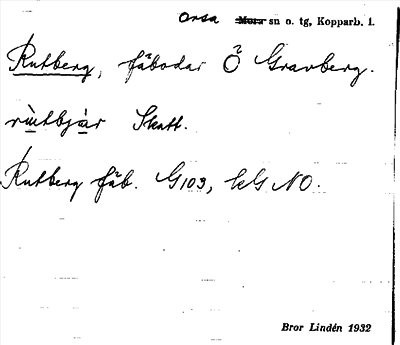 Orsa ~~Mora~~ sn o. tg, Kopparb. l.
Rutberg, fäbodar Ö Gravberg.
rùtbjär Skatt.
Rutberg fäb. G103, kG NO.
Bror Lindén 1932